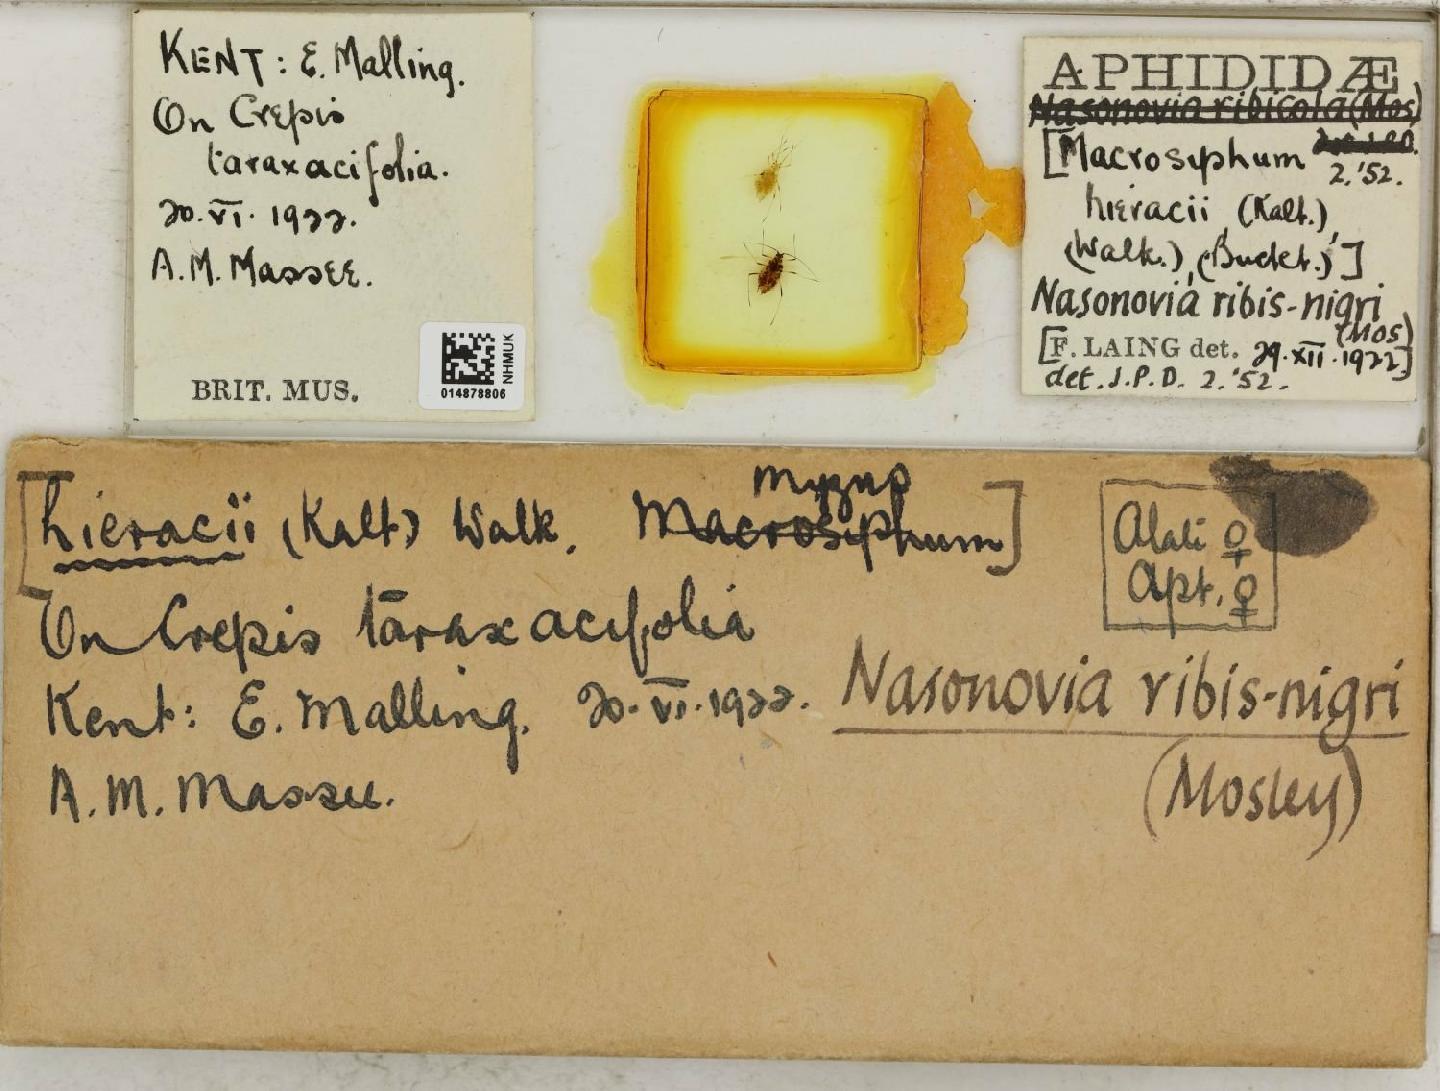 KENT: E. Malling.
On Crepis
taraxacifolia.
20.VI.1922.
A.M. Massee.
BRIT. MUS.
NHMUK
014878806
APHIDIDÆ
Nasonovia ribicola (Mos)
[Macrosiphum
2.'52.
hieracii (Kalt.),
(Walk.), (Buckt.)]
Nasonovia ribis-nigri
(Mos)
[F. LAING det. 29.XII.1922]
det. J.P.D. 2.'52.
Myzus
[hieracii (Kalt) Walk. Macrosiphum]
On Crepis taraxacifolia
Kent: E. Malling. 20.VI.1922.
A.M. Massee.
Alate ♀
Apt. ♀
Nasonovia ribis-nigri
(Mosley)